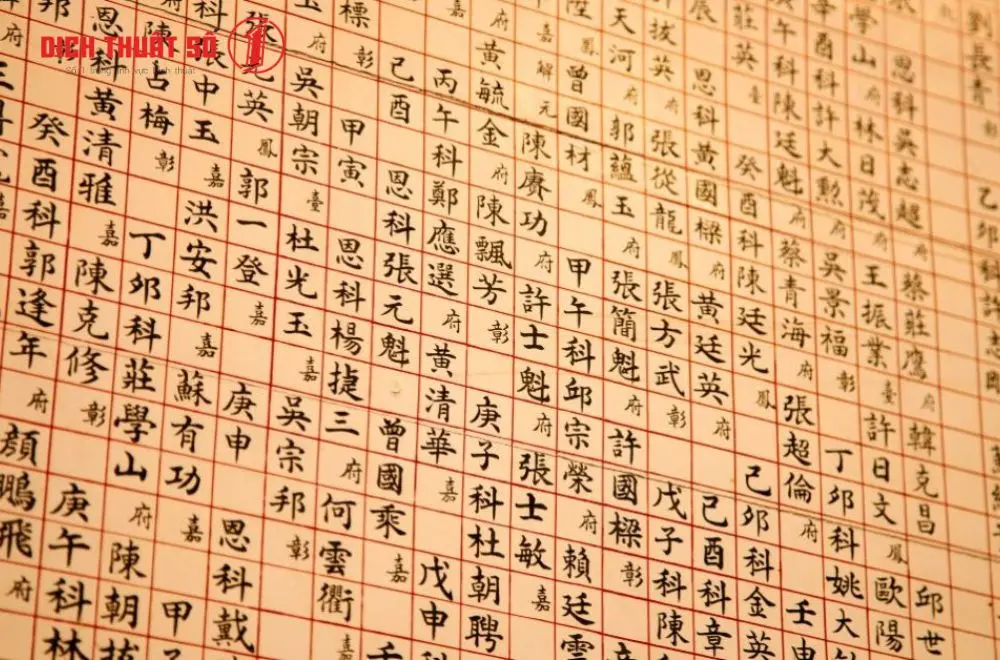 DỊCH THUẬT SỐ 1
Số 1 trong lĩnh vực dịch thuật
劉長青 乙卯科許
恩科吳志超 蔡莊鷹 府 韓克昌 邱世
學山 府 林日茂 王振業 臺 許日文 鳳 歐陽
酉科許大勳 府 吳景福 彰 丁卯科姚大
午科陳廷魁 府 蔡青海 府 張超倫 府 壬申
莊英 臺 癸酉科陳廷光 鳳 己卯科金英
辰 恩科黃國樑 府 黃廷英 府 己酉科章
拔英 府 張從龍 鳳 張方武 彰 戊子科陳
天河 府 郭蘊玉 府 張簡魁 府 許國樑 彰
陞 鳳 曾國材 鳳 甲午科邱宗榮 府 賴廷雲
嘉 解元 陳賡功 府 許士魁 府 張士敏 嘉
嘉 黃毓金 府 陳飄芳 彰 庚子科杜朝聘
府 丙午科鄭應選 府 黃清華 嘉 戊申科
彰 己酉 恩科張元魁 曾國乘 嘉
標 府 甲寅 恩科楊捷三 府 何雲衢 嘉
吳朝宗 臺 杜光玉 嘉 吳宗邦 彰
張元英 鳳 郭一登 嘉 庚申 恩科戴
科張中玉 嘉 洪安邦 嘉 蘇有功 嘉 甲
陳古梅 彰 丁卯科莊學山 府 陳朝拔
恩科黃清雅 嘉 陳克修 彰 庚午科林
邦 癸酉科郭逢年 府 顏鵬飛 府